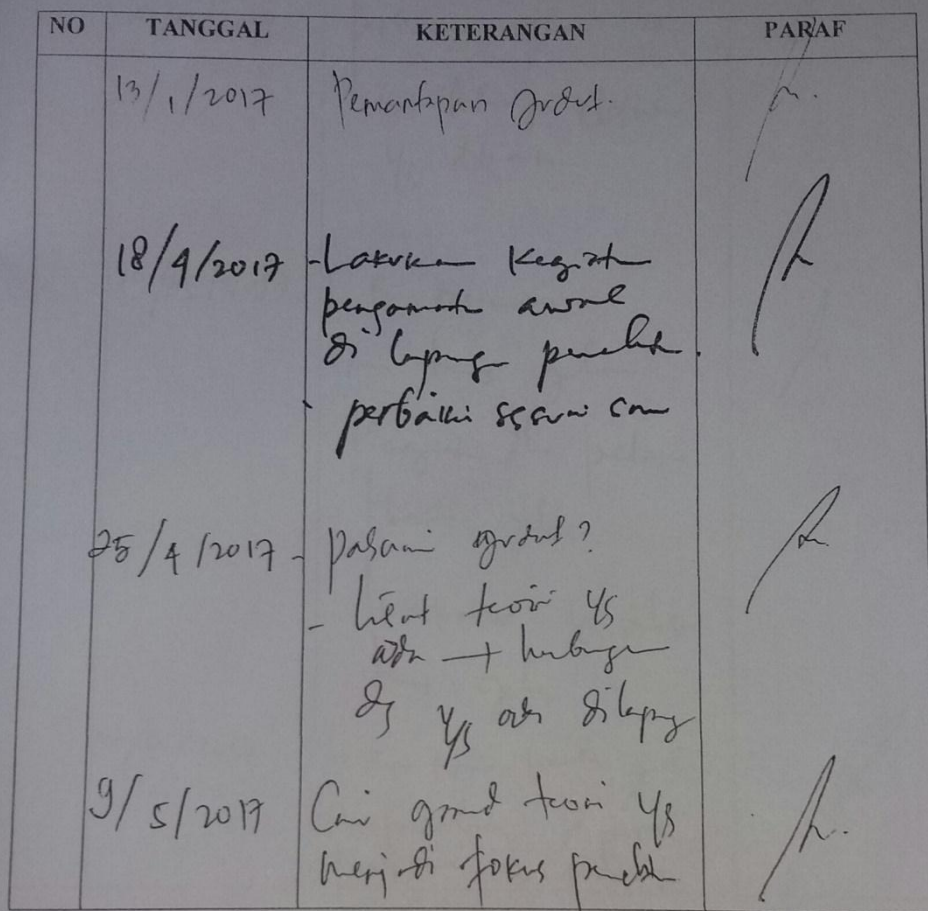 NO TANGGAL KETERANGAN PARAF
13/1/2017 Pemantapan Judul.
18/4/2017 - Lakukan Kegiatan
pengamatan awal
di lapangan penelit.
- perbaiki sesuai
25/4/2017 - pahami judul?
- lihat teori yg
ada → hubungan
dg yg ada dilapang
9/5/2017 Cari grand teori yg
menjadi fokus penelit